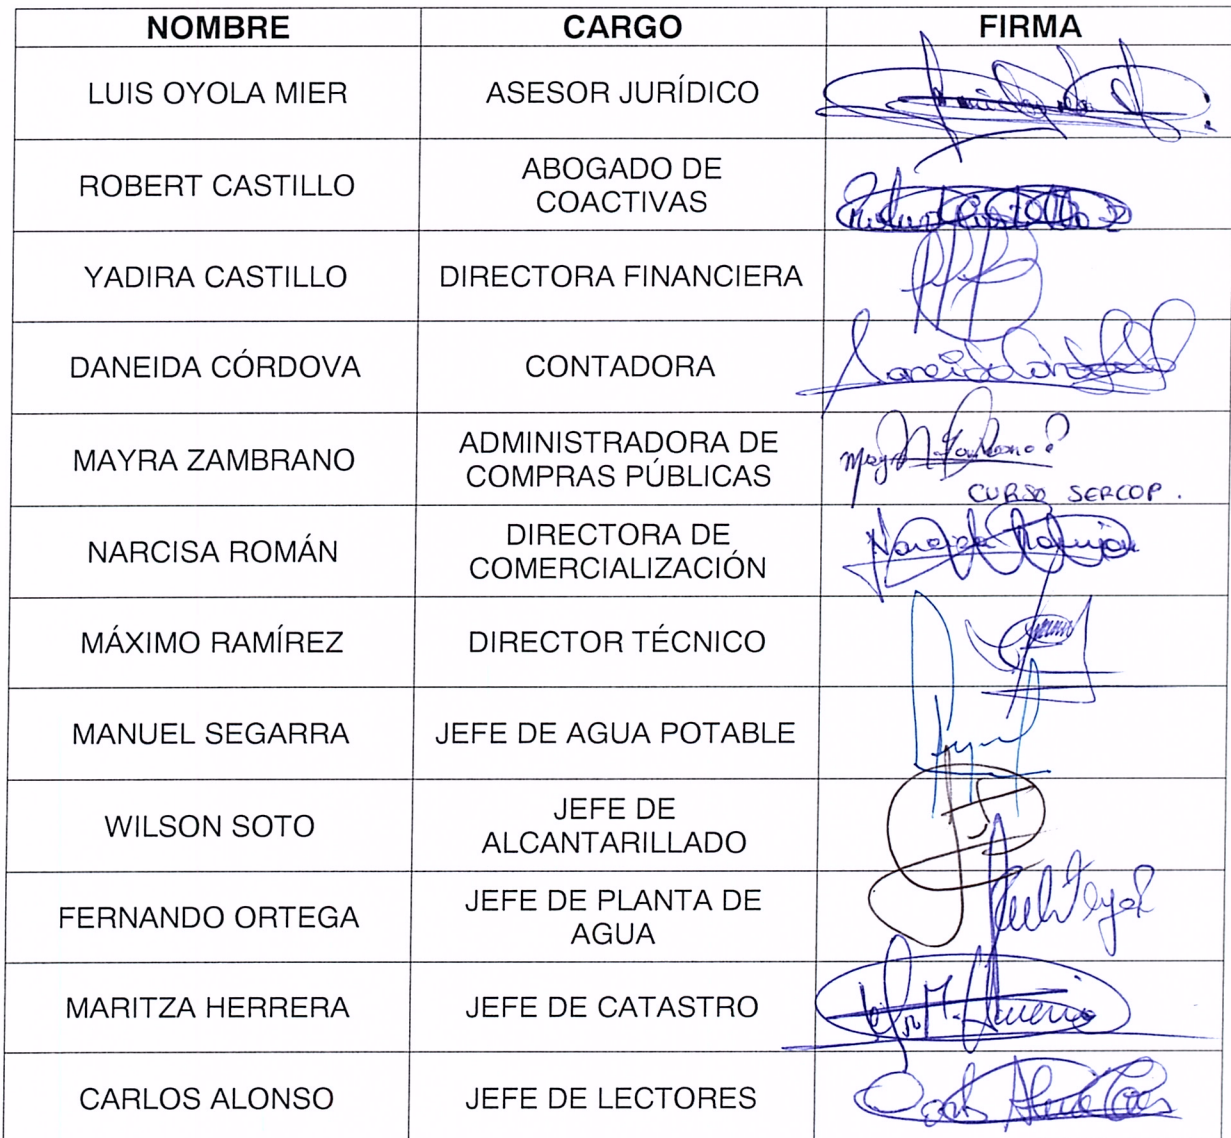 NOMBRE CARGO FIRMA
LUIS OYOLA MIER ASESOR JURÍDICO
ROBERT CASTILLO ABOGADO DE
COACTIVAS
YADIRA CASTILLO DIRECTORA FINANCIERA
DANEIDA CÓRDOVA CONTADORA
MAYRA ZAMBRANO ADMINISTRADORA DE
COMPRAS PÚBLICAS
CURSO SERCOP.
NARCISA ROMÁN DIRECTORA DE
COMERCIALIZACIÓN
MÁXIMO RAMÍREZ DIRECTOR TÉCNICO
MANUEL SEGARRA JEFE DE AGUA POTABLE
WILSON SOTO JEFE DE
ALCANTARILLADO
FERNANDO ORTEGA JEFE DE PLANTA DE
AGUA
MARITZA HERRERA JEFE DE CATASTRO
CARLOS ALONSO JEFE DE LECTORES